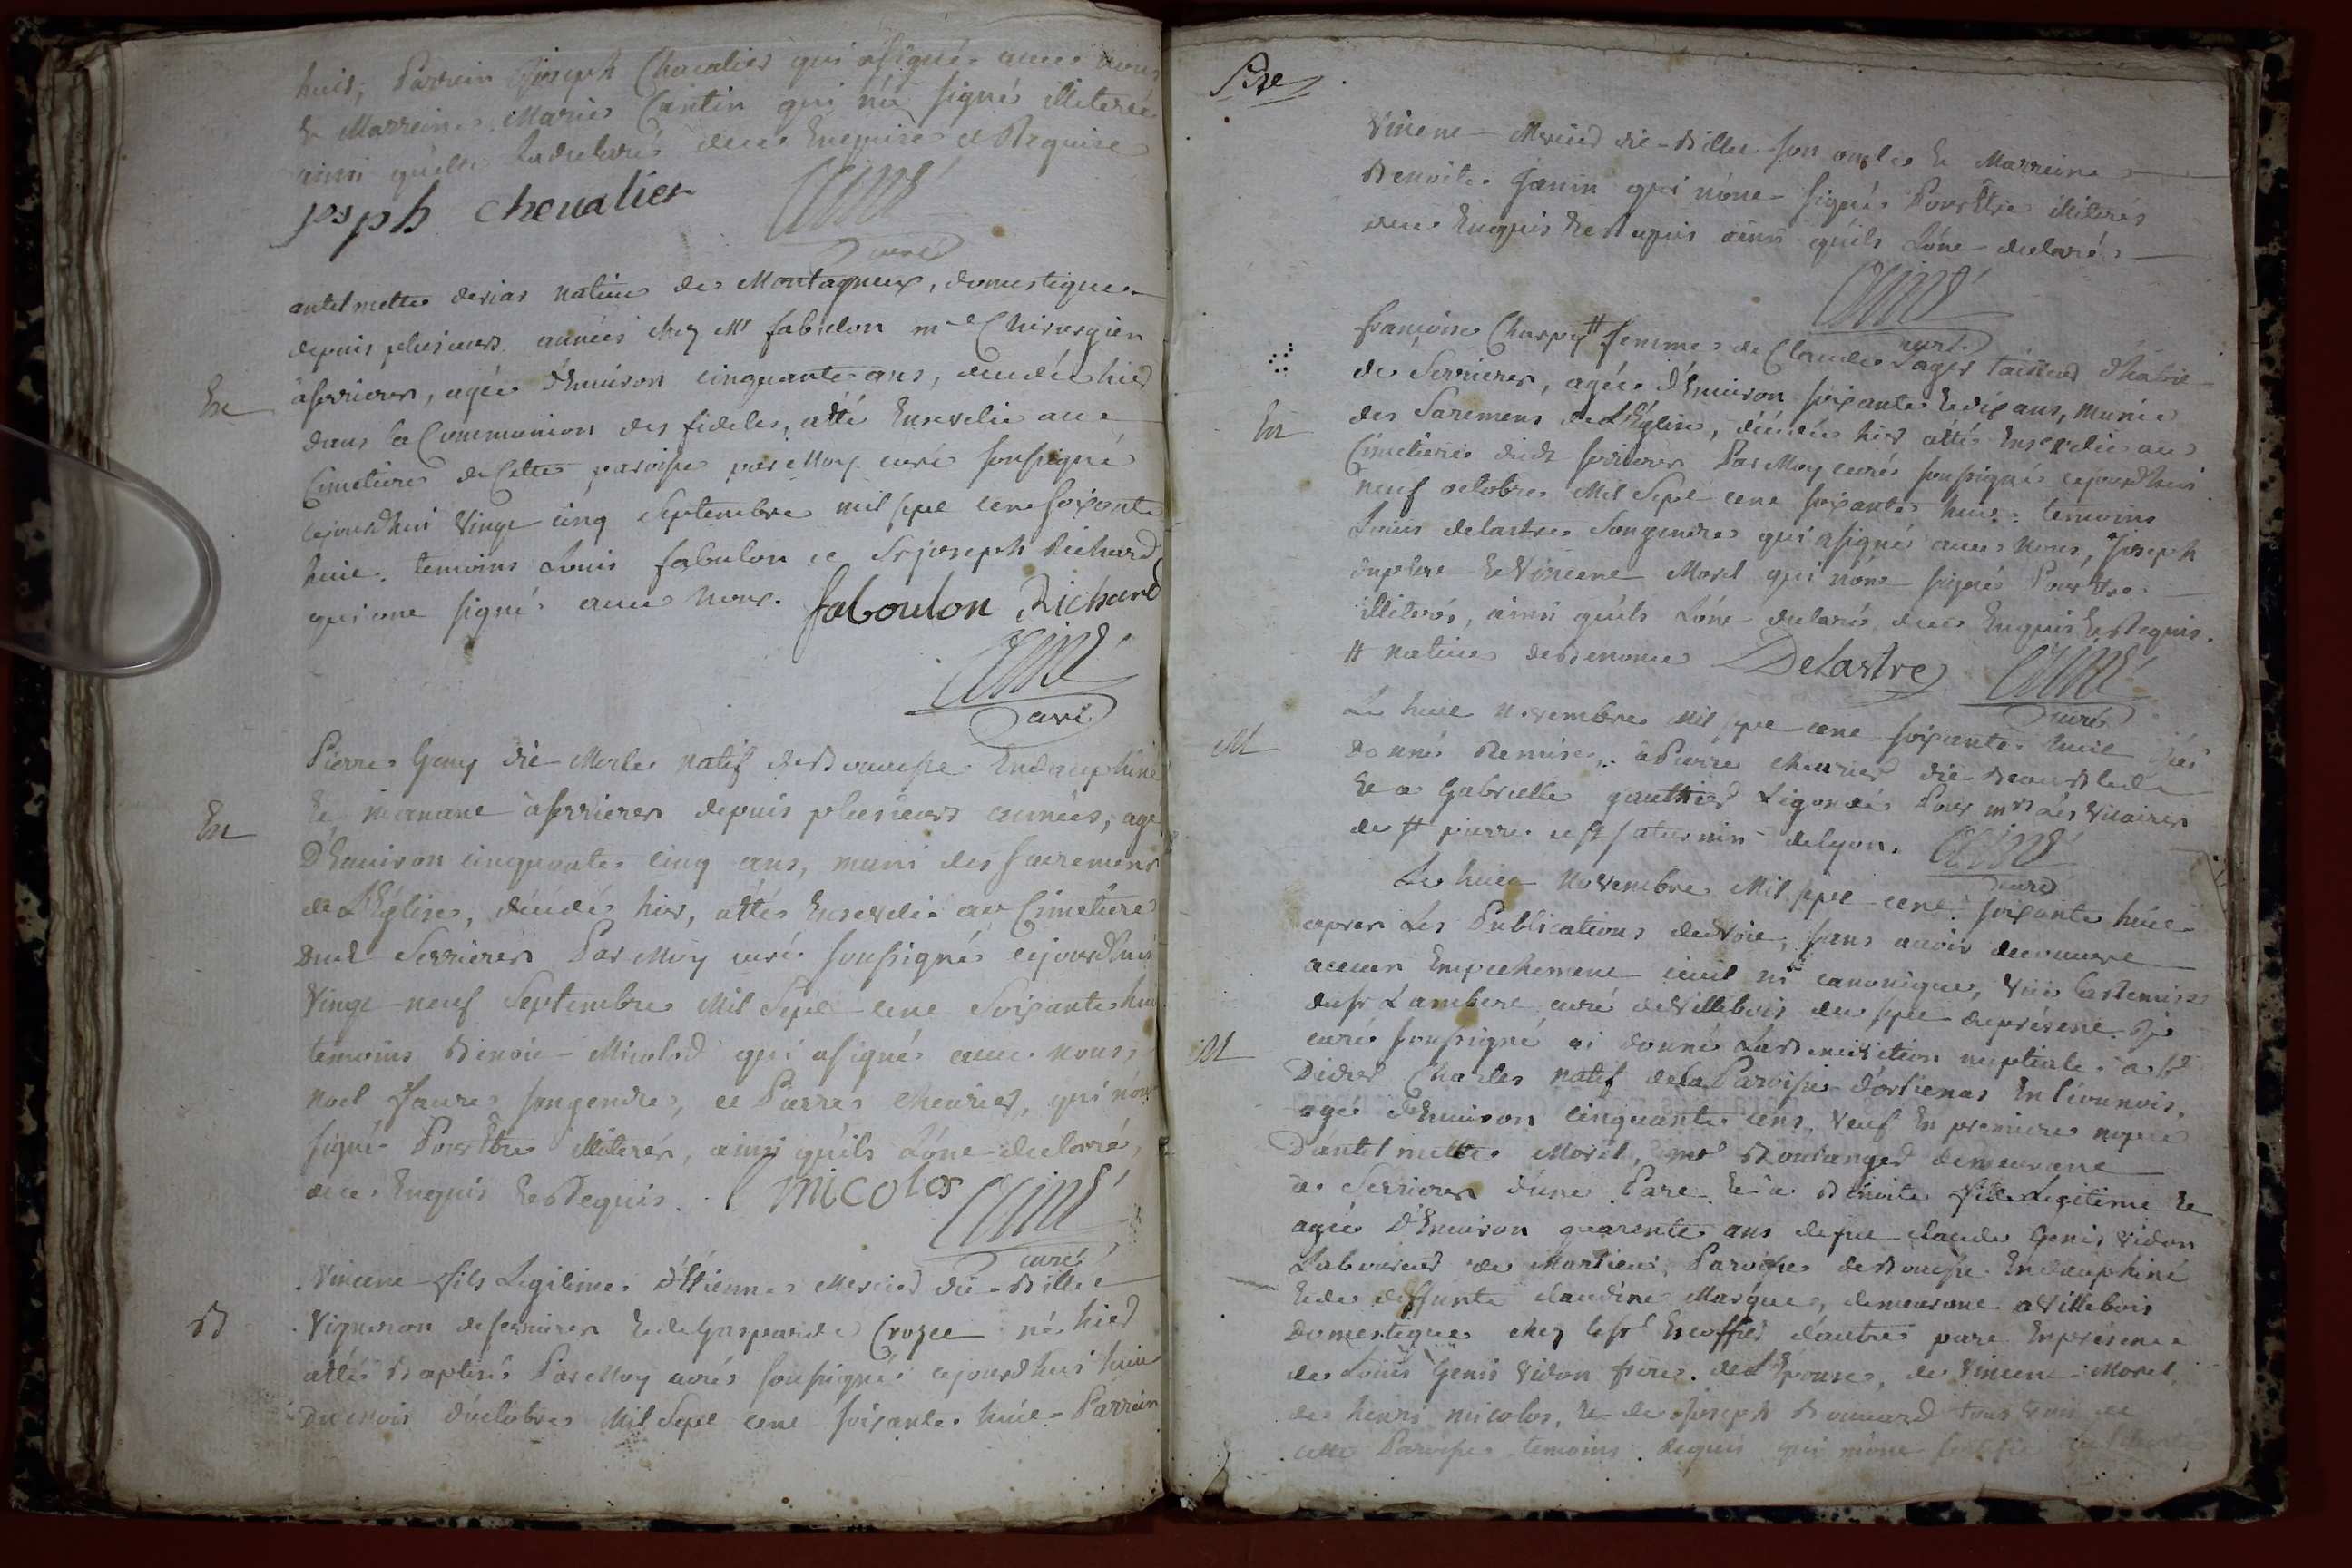 huit, Parrein Joseph Chevalier qui a signé avec nous
Et Marreine Marie Cantin qui n'a signé illiteree
ainsi qu'elle l'a declaré dece Enquise et Requise
joseph chevalier
curé
antelmette derias native de Montagneux, domestique
depuis plusieurs années chez Mr fabulon me Chirurgien
En
a serrieres, agée d'Environ cinquante ans, decedée hier
dans la Communion des fideles, a été Ensevelie au
Cimetiere de Cette paroisse par Moy curé soussigné
cejourd'hui Vingt cinq Septembre mil sept cent soixante
huit. temoins Louis fabulon et Sr joseph Richard
qui ont signé avec Nous. faboulon Richard
curé
Pierre Geny dit Merle natif de Bouvesse En dauphiné
En
Et manant a serrieres depuis plusieurs années, agé
D'Environ cinquante cinq ans, muni des sacremens
de L'Eglise, décédé hier, a étés Enseveli au Cimetiere
Dud Serrieres Par Moy curé soussigné cejourd'hui
Vingt neuf Septembre Mil Sept cent Soixante huit
temoins Benoit Micolod qui a signé avec nous
noel faure son gendre, et Pierre cheurier, qui n'ont
signé Pour Etre illiterés, ainsi qu'ils L'ont declaré,
dece Enquis Et Requis. micolos
curé
Vincent fils Legitime d'Etienne Mercier dit Billet
B
Vigneron de serrieres Et de Gasparde Crozet né hier
a étés Baptisé Par Moy curé soussigné cejourd'hui huit
Du mois d'octobre Mil Sept cent soixante huit Parrein
Vincent Mercier dit Billet son oncle Et Marreine
Benoite Janin qui n'ont signé Pour Etre illiterés
dece Enquis Et Requis ainsi qu'ils L'ont declaré
curé
françoise Charpy # femme de Claude Lager tailleur d'habit
de Serrieres, agée d'Environ soixante Et dix ans, munie
En
des Sacremens de L'Eglise, décédée hier a étés Ensevelie au
Cimetiere dudt serrieres Par Moy curé soussigné cejourd'hui
neuf octobre Mil Sept cent soixante huit. temoins
Louis delastre Son gendre qui a signé avec Nous, Joseph
Et Vincent Morel qui n'ont signé Pour Etre
illiterés, ainsi qu'ils L'ont declaré dece Enquis Et Requis.
# native de Benonce Delastre
curé
M
Le huit Novembre Mil sept cent soixante huit j'ai
Donné Remise a Pierre cheurier dit
Et a Gabrielle gauttier Ligondé Pour mrs Les Vicaires
de st pierre et st saturnin de lyon.
curé
Le huit Novembre Mil sept cent soixante huit
apres Les Publications devoit, sans avoir decouvert
aucun Empechement civil ni canonique, Vüe la Remise
du sr Lambert curé de Villebois du sept du présent Je
M
curé soussigné ai donné La Benediction nuptiale a sr
Didier Charles natif de la Paroisse d'ortienas En lionnois,
agé d'Environ cinquante ans, Veuf En premiere noçes
D'antelmette Morel, me Boulanger demeurant
a Serrieres d'une Part Et a Benoite fille Legitime Et
agée D'Environ quarente ans de feu claude Genis Vidon
Laboureur de Marsieu, Paroisse de Bouvesse En dauphiné
Et de deffunte claudine Marque, demeurant a Villebois
Domestique chez le sr Escoffier d'autre part En présence
de Louis Genis Vidon frere de L'Epouse, de Vincent Morel,
de henri micolos, Et de Joseph Bouvard tous trois de
cette Paroisse temoins requis qui n'ont